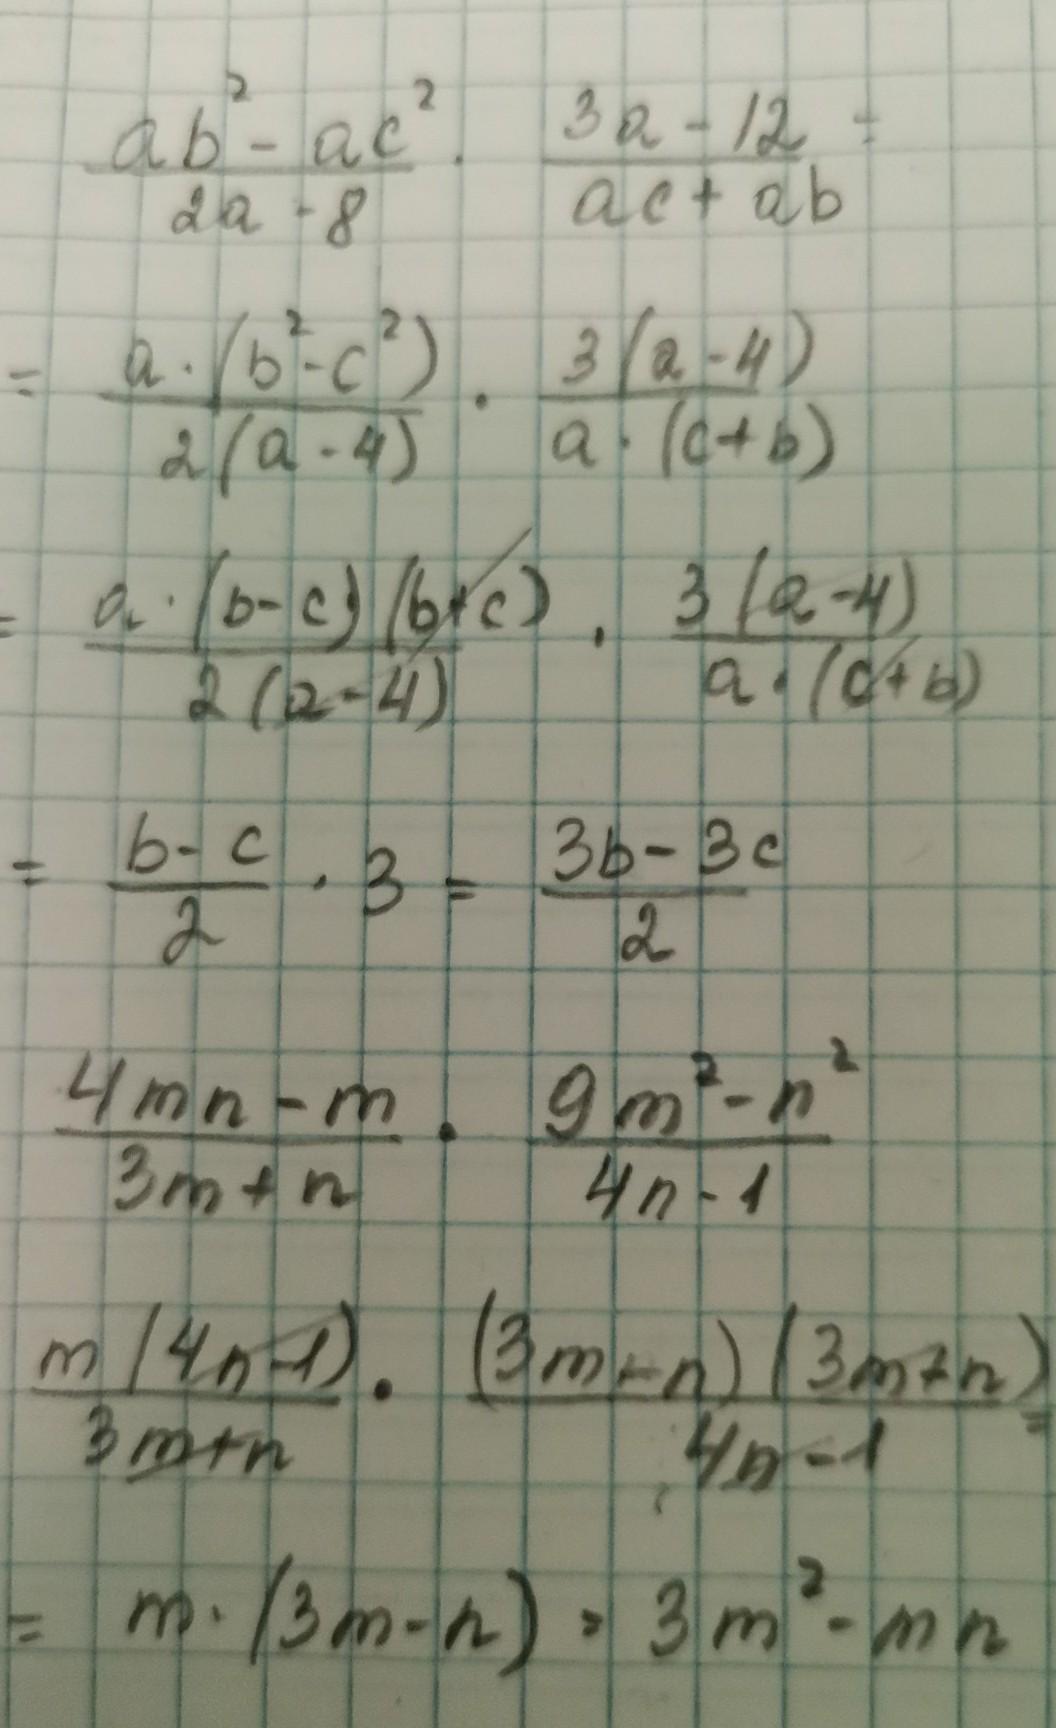 (ab² - ac²)/(2a - 8) · (3a - 12)/(ac + ab) =
= (a · (b² - c²))/(2(a - 4)) · (3(a - 4))/(a · (c + b))
= (a · (b - c)(b + c))/(2(a - 4)) · (3(a - 4))/(a · (c + b))
= (b - c)/2 · 3 = (3b - 3c)/2
(4mn - m)/(3m + n) · (9m² - n²)/(4n - 1)
(m(4n - 1))/(3m + n) · ((3m - n)(3m + n))/(4n - 1) =
= m · (3m - n) = 3m² - mn